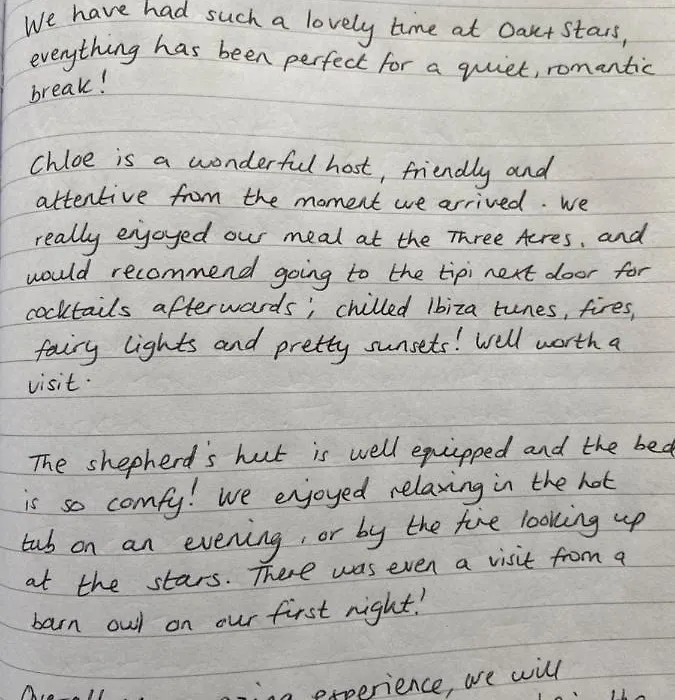 We have had such a lovely time at Oak+ Stars,
everything has been perfect for a quiet, romantic
break!
Chloe is a wonderful host, friendly and
attentive from the moment we arrived. We
really enjoyed our meal at the Three Acres, and
would recommend going to the tipi next door for
cocktails afterwards; chilled Ibiza tunes, fires,
fairy lights and pretty sunsets! Well worth a
visit.
The shepherd's hut is well equipped and the bed
is so comfy! We enjoyed relaxing in the hot
tub on an evening, or by the fire looking up
at the stars. There was even a visit from a
barn owl on our first night!
experience, we will